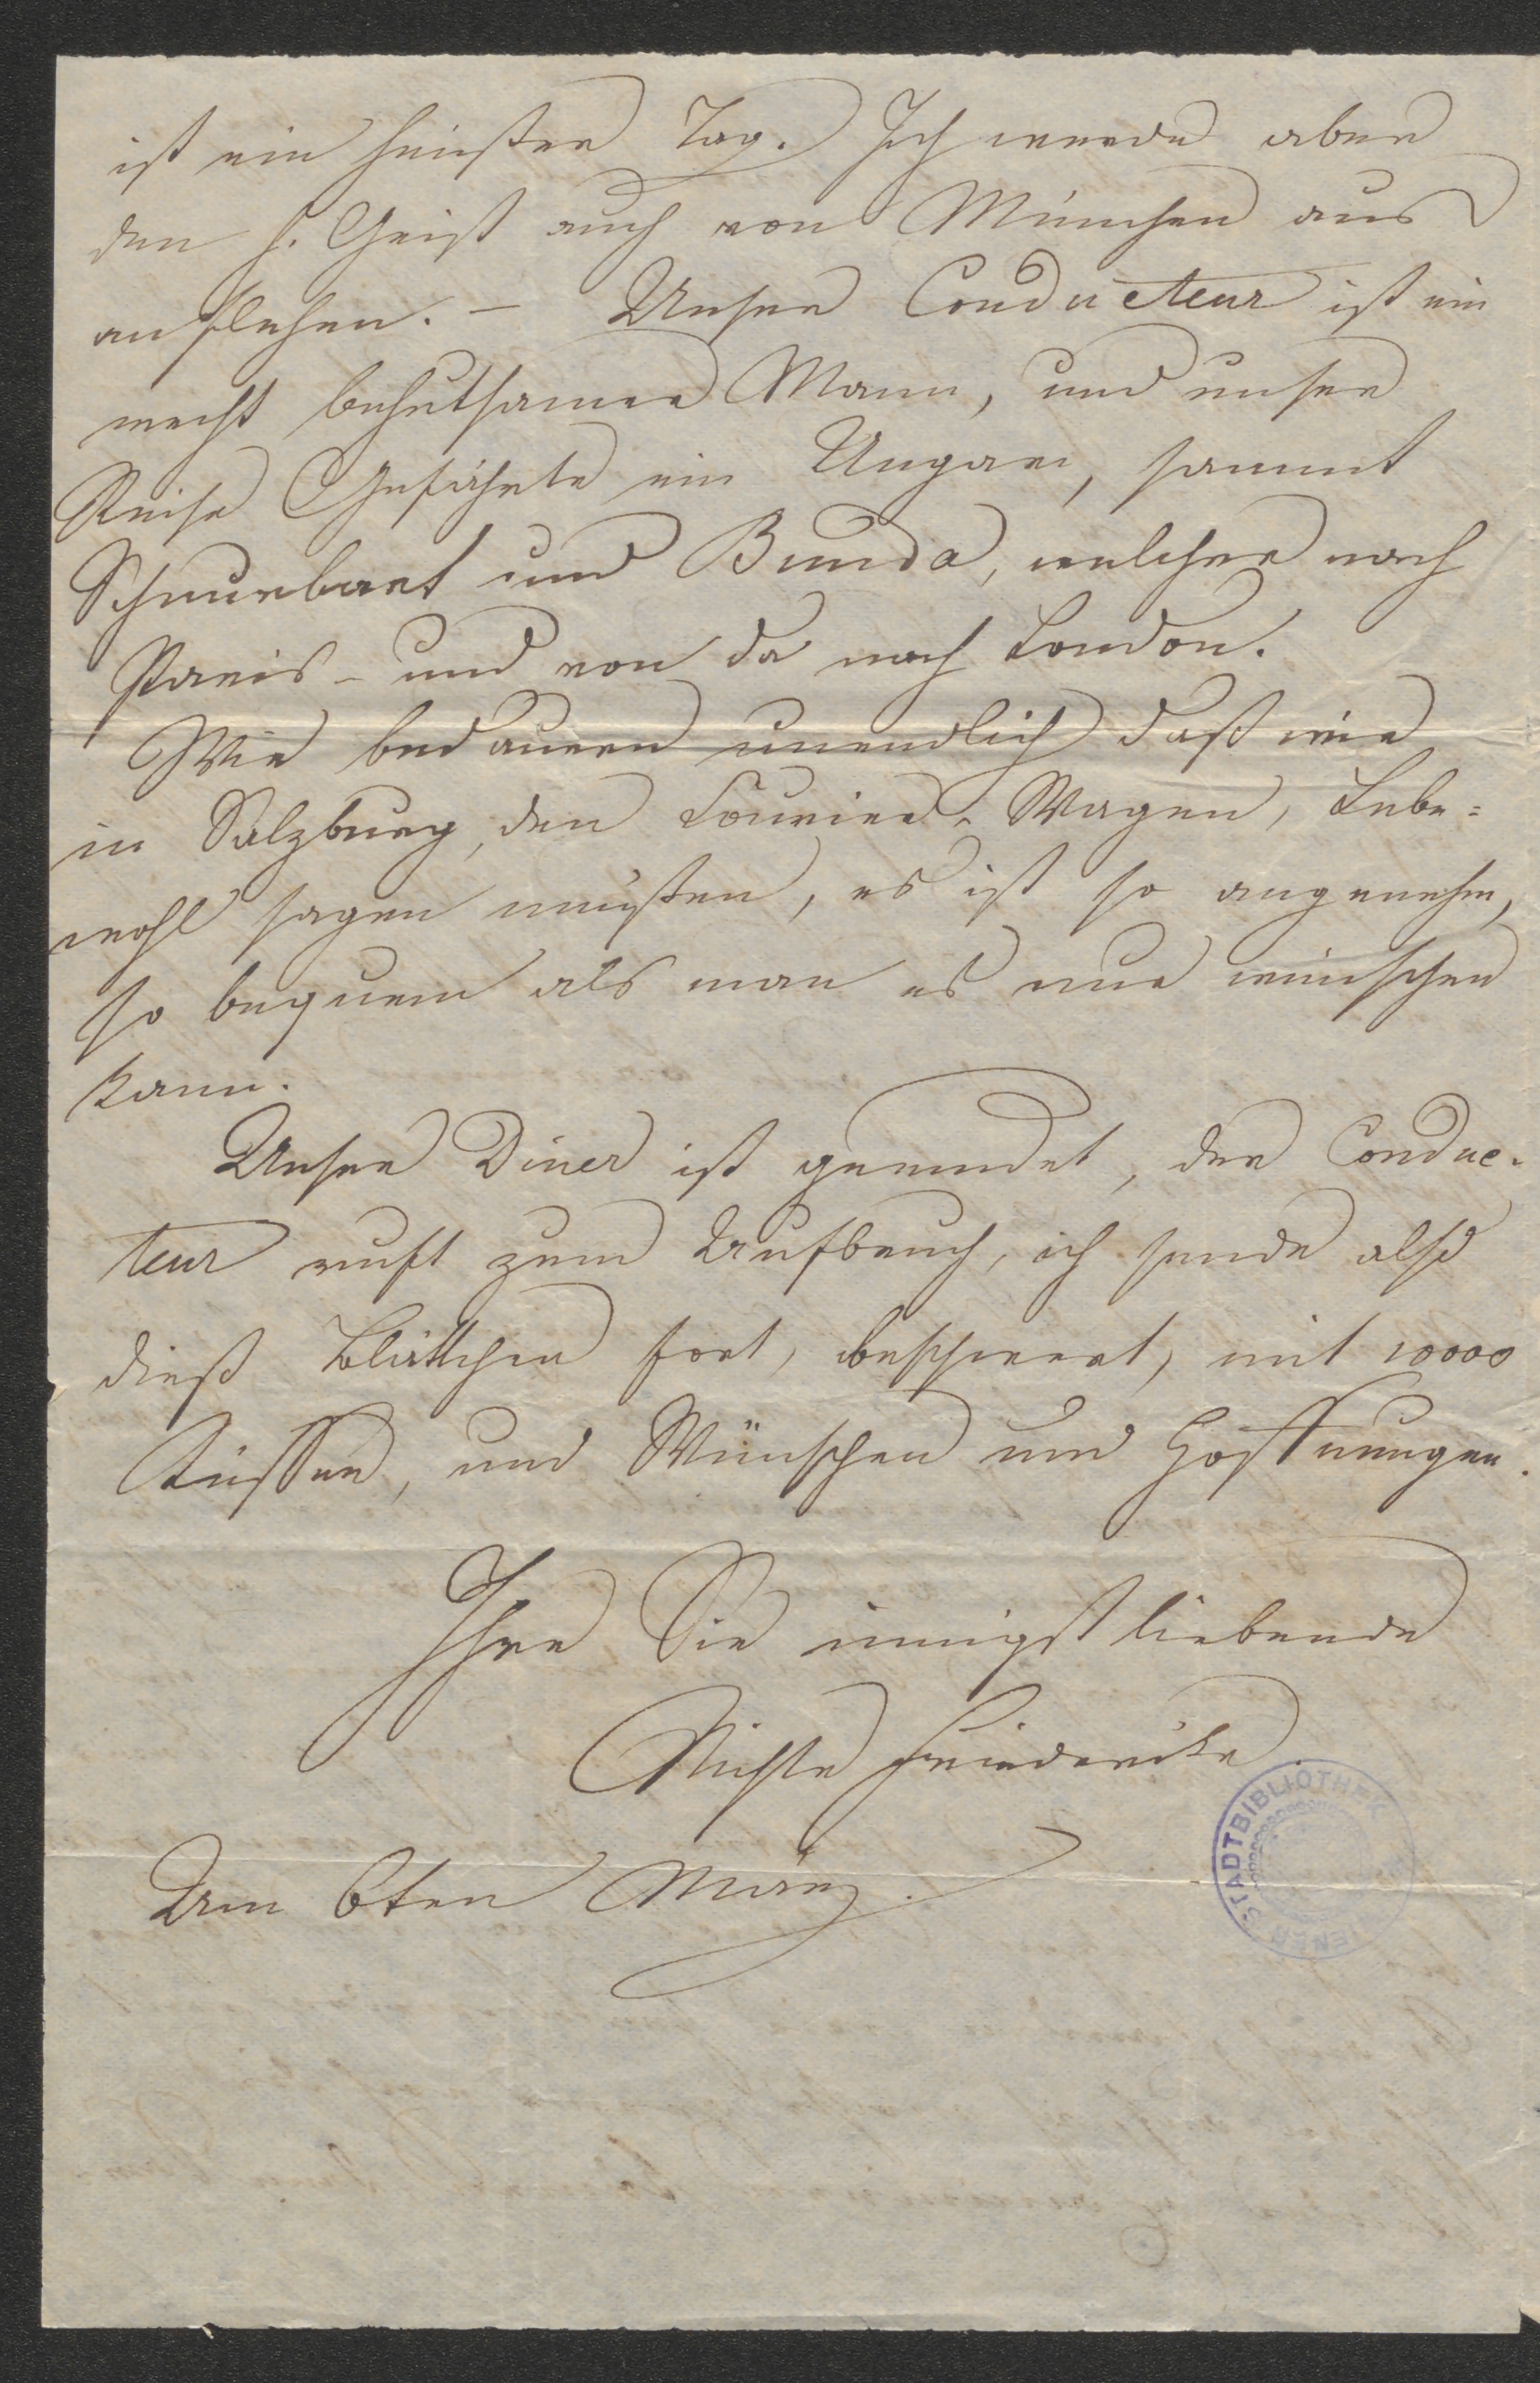 ist ein heißer Tag. Ich werde aber
den h. Geist auch von München aus
anflehen. – Unser Conducteur ist ein
recht behutsamer Mann, und unser
Reise Gefährte ein Ungar, sammt
Schnurbart und Bunda, welcher nach
Paris – und von da nach London.
Wir bedauern unendlich daß wir
in Salzburg, den Courier-Wagen, Lebe=
wohl sagen mußten, es ist so angenehm,
so bequem als man es nur wünschen
kann.
Unser Diner ist geendet, der Conduc-
teur ruft zum Aufbruch, ich sende also
dieß Blättchen fort, beschwert, mit 10000
Küssen, und Wünschen und Hoffnungen.
Ihre Sie innigst liebende
Nichte Friedericke.
Am 6ten März.
WIENER STADTBIBLIOTHEK